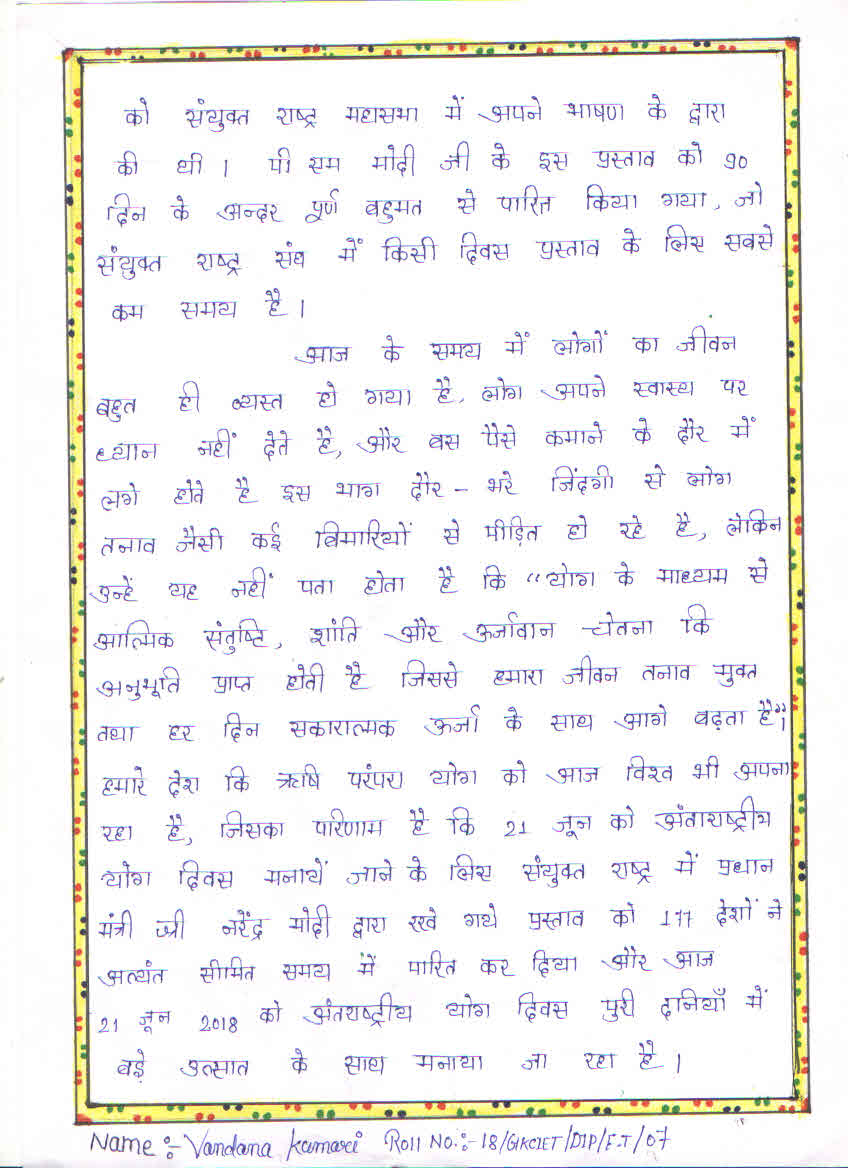 को संयुक्त राष्ट्र महासभा में अपने भाषण के द्वारा
की थी । पी एम मोदी जी के इस प्रस्ताव को 90
दिन के अन्दर पूर्ण बहुमत से पारित किया गया, जो
संयुक्त राष्ट्र संघ में किसी दिवस प्रस्ताव के लिए सबसे
कम समय है ।
आज के समय में लोगों का जीवन
बहुत ही व्यस्त हो गया है, लोग अपने स्वास्थ्य पर
ध्यान नहीं देते है, और बस पैसे कमाने के दौर में
लगे होते है इस भाग दौर - भरे जिंदगी से लोग
तनाव जैसी कई बिमारियों से पीड़ित हो रहे है, लेकिन
उन्हें यह नहीं पता होता है कि "योग के माध्यम से
आत्मिक संतुष्टि, शांति और ऊर्जावान चेतना कि
अनुभूति प्राप्त होती है जिससे हमारा जीवन तनाव मुक्त
तथा हर दिन सकारात्मक ऊर्जा के साथ आगे बढ़ता है"।
हमारे देश कि ऋषि परंपरा योग को आज विश्व भी अपना
रहा है, जिसका परिणाम है कि 21 जून को अंताराष्ट्रीय
योग दिवस मनायें जाने के लिए संयुक्त राष्ट्र में प्रधान
मंत्री श्री नरेंद्र मोदी द्वारा रखे गये प्रस्ताव को 177 देशों ने
अत्यंत सीमित समय में पारित कर दिया और आज
21 जून 2018 को अंतराष्ट्रीय योग दिवस पुरी दुनियाँ में
बड़े उत्सात के साथ मनाया जा रहा है ।
Name :- Vandana Kumari Roll No.:- 18/GIKCIET/DIP/E.T/07